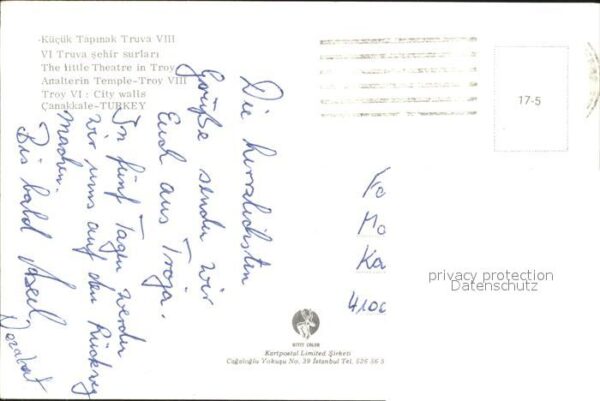 Küçük Tapınak Truva VIII
VI Truva şehir surları
The little Theatre in Troy
Analterin Temple-Troy VIII
Troy VI : City walls
Çanakkale-TURKEY
Die herzlichsten
Grüße senden wir
Euch aus Troja.
In fünf Tagen werden
wir uns auf den Rückweg
machen.
Bis bald
17-5
Fa
Mo
Ka
4100
privacy protection
Datenschutz
Kartpostal Limited Şirketi
Cağaloğlu Yokuşu No. 39 İstanbul Tel. 526 56 5